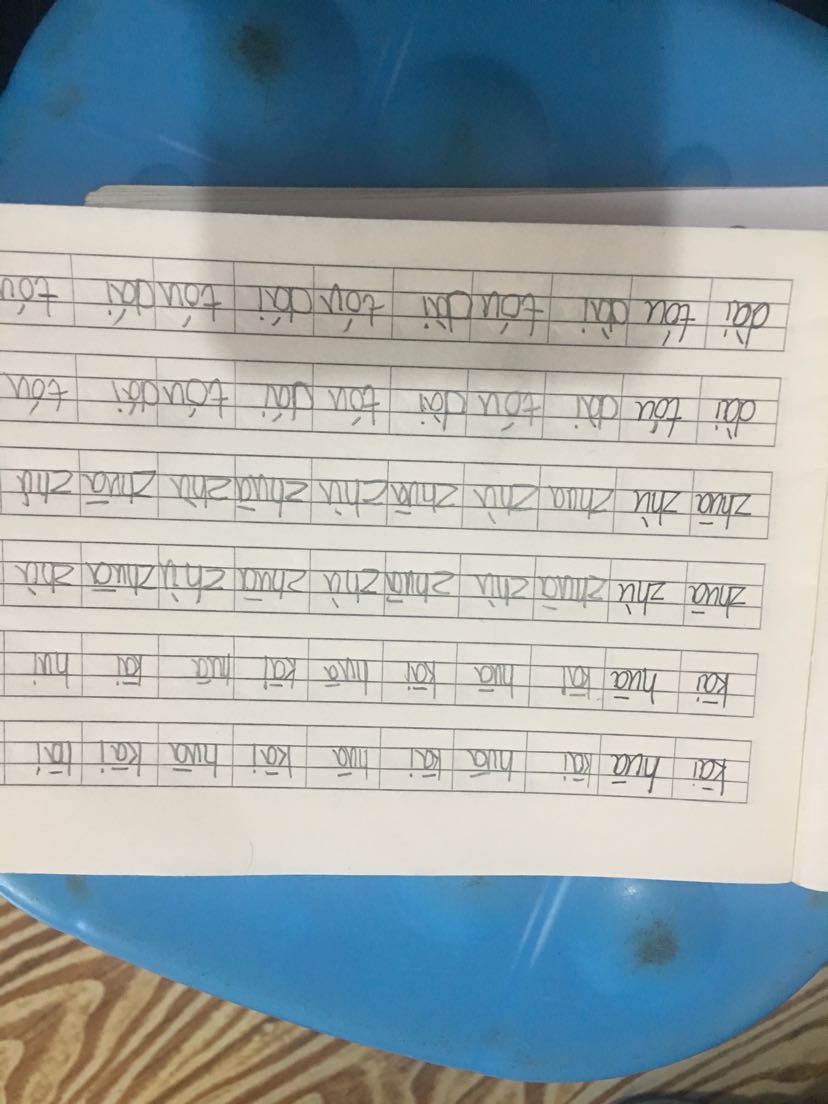 kāi huā kāi huā kāi huā kāi huā kāi kāi
kāi huā kāi huā kāi huā kāi huā kāi hui
zhuā zhù zhuā zhù zhuā zhù zhuā zhù zhuā zhù
zhuā zhù zhua zhù zhuā zhù zhuā zhù zhuā zhù
dài tóu dài tóu dài tóu dái tóu dái tóu
dài tóu dài tóu dài tóu dái tóu dái tóu